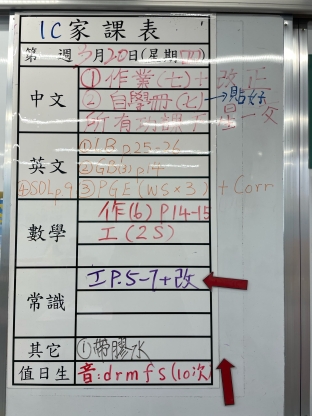 1C家課表
第 週 5月20日(星期四)
中文
①作業(七)+改正
②自學冊(七)→貼好
所有功課下星一交
英文
①LB p25-26
②GB(8) p14
④SOLp9 ③PGE(WS×3) + Corr
數學
作(6) P14-15
工(2S)
常識
工P.5-7+改
其它
①帶膠水
值日生
音:drmfs(10次)